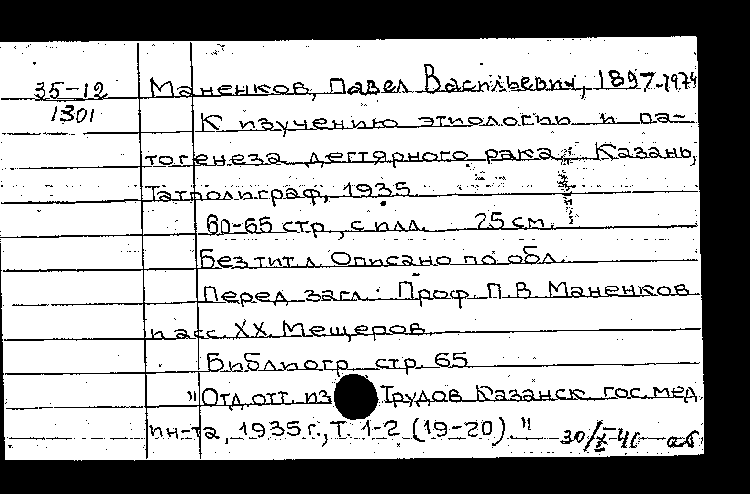 35-12 Маненков, Павел Васильевич, 1897-1974
1301 К изучению этиологии и па-
тогенеза дегтярного рака. Казань,
Татполиграф, 1935.
60-65 стр., с илл. 25 см.
Без тит. л. Описано по обл.
Перед загл.: Проф. П.В. Маненков
и асс. Х.Х. Мещеров.
Библиогр. стр. 65
"Отд. отт. из Трудов Казанск. гос. мед.
ин-та, 1935 г., Т. 1-2 (19-20)." 30/X-40 аб